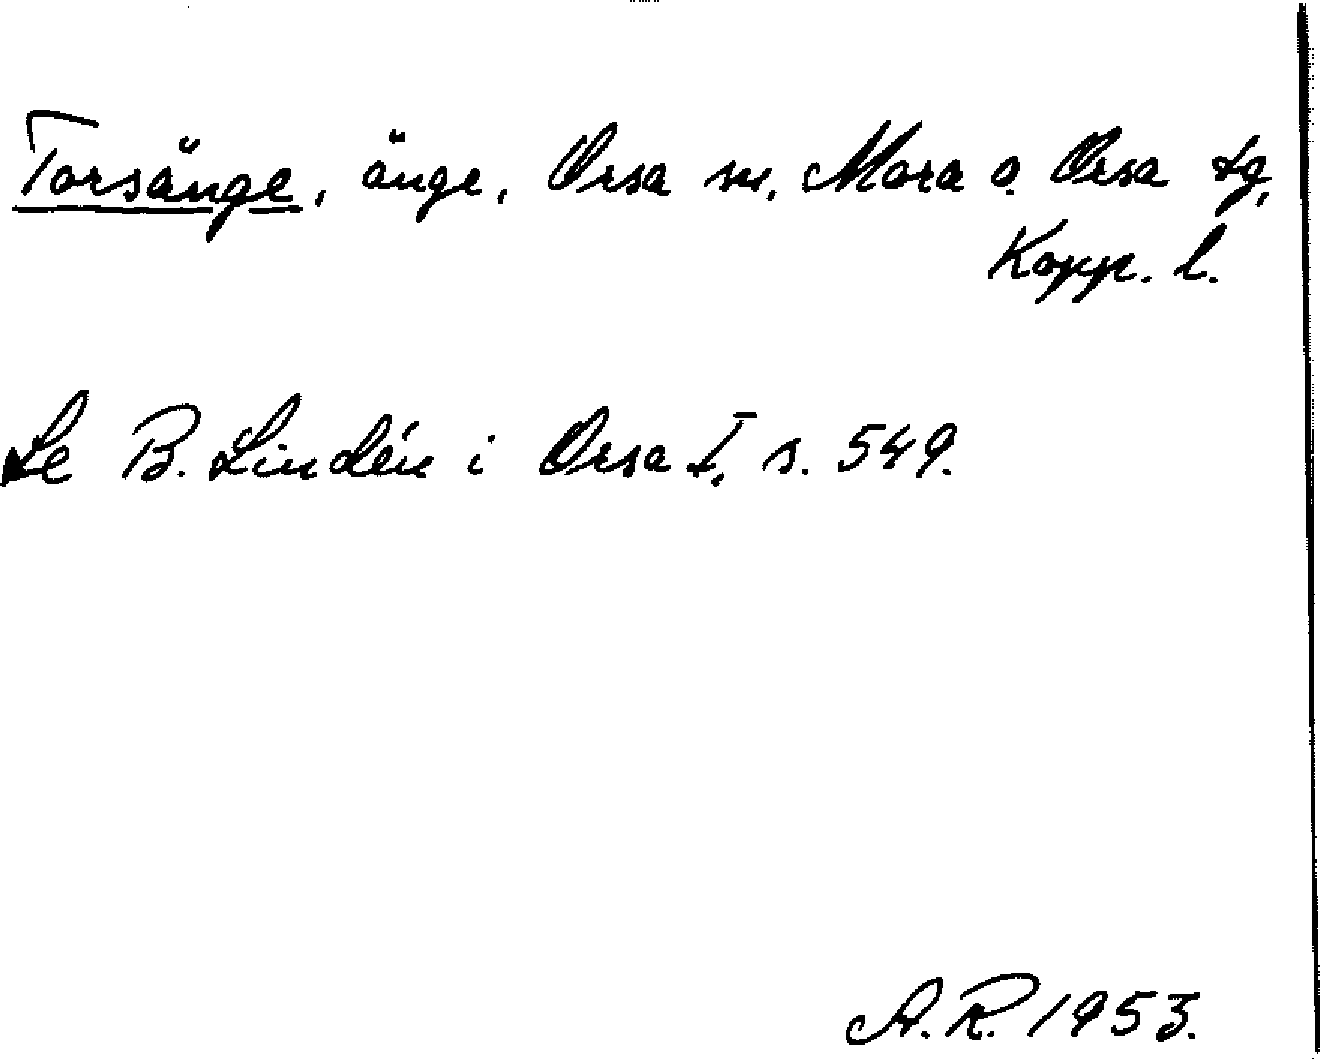 Torsänge, änge, Orsa sn, Mora o. Orsa tg,
Kopp. l.
Se B. Lindén i Orsa I, s. 549.
A.R. 1953.